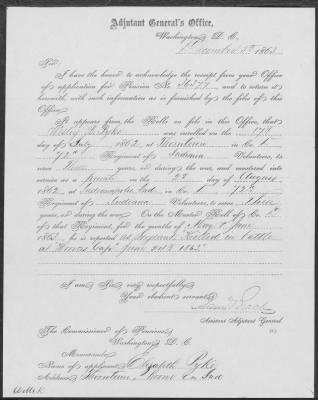 Adjutant General's Office,
Washington, D. C.
December 5th 1863
Sir:
I have the honor to acknowledge the receipt from your Office
of application for Pension No. 36377, and to return it
herewith, with such information as is furnished by the files of this
Office.
It appears from the Rolls on file in this Office, that
Wesley B. Pyke was enrolled on the 17th
day of July 1862, at Thorntown in Co. I
72nd Regiment of Indiana Volunteers, to
serve Three years, or during the war, and mustered into
service as a Private on the day of August
1862, at Indianapolis, Ind. in Co. I 72nd
Regiment of Indiana Volunteers, to serve Three
years, or during the war. On the Muster Roll of Co. I
of that Regiment, for the months of May & June
1863, he is reported as Sergeant Killed in battle
at Hoovers Gap June 24th 1863
I am Sir, very respectfully,
Your obedient servant,
Assistant Adjutant General.
The Commissioner of Pensions,
Washington, D. C.
Memoranda:
Name of applicant, Elizabeth Pyke
Address, Thorntown Boone Co Ind